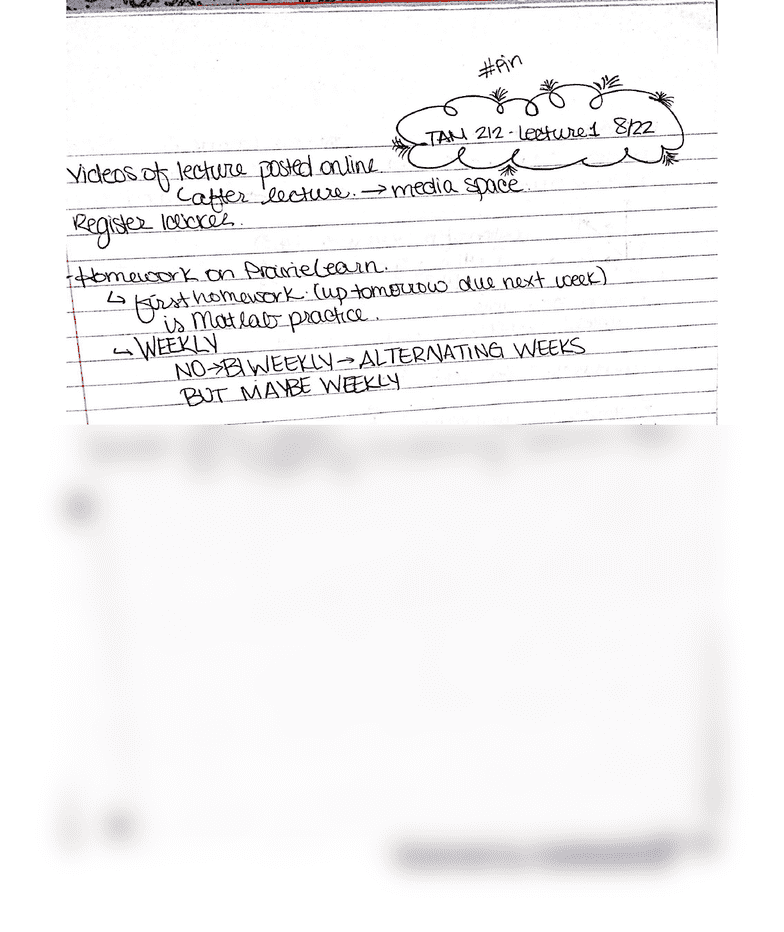 #Pin
TAM 212 - Lecture 1 8/22
Videos of lecture posted online
↳ after lecture. → media space
Register iclicker.
-Homework on PrairieLearn.
↳ first homework (up tomorrow due next week)
is Matlab practice.
↳ WEEKLY
NO → BIWEEKLY → ALTERNATING WEEKS
BUT MAYBE WEEKLY